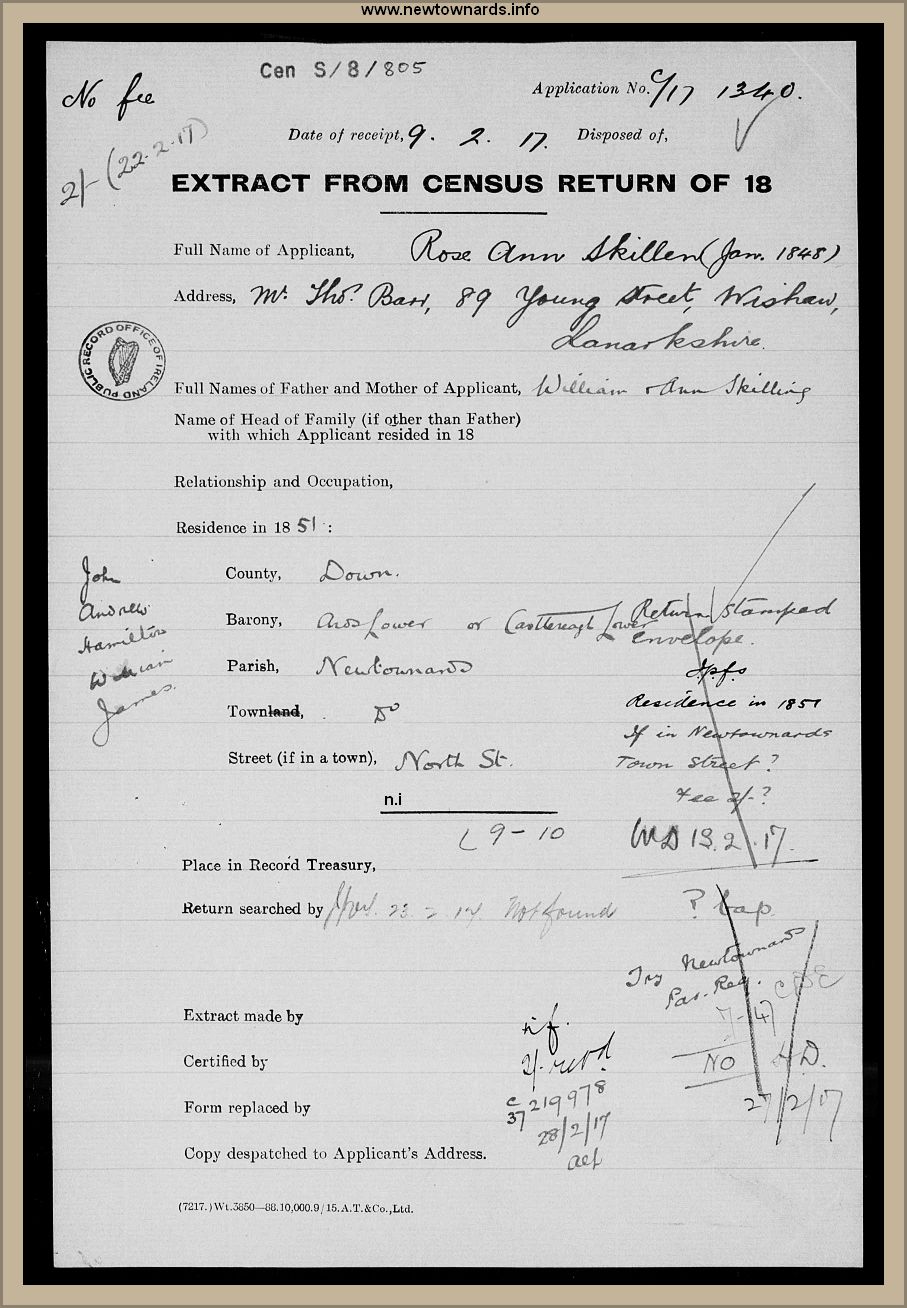 www.newtownards.info
Cen S/8/805
No fee
Application No. C/17 1340.
Date of receipt, 9. 2. 17. Disposed of,
2/- (22.2.17)
EXTRACT FROM CENSUS RETURN OF 18
Full Name of Applicant, Rose Ann Skillen (Jan. 1848)
Address, Mr. Thos. Barr, 89 Young Street, Wishaw,
Lanarkshire.
PUBLIC RECORD OFFICE OF IRELAND
Full Names of Father and Mother of Applicant, William & Ann Skilling
Name of Head of Family (if other than Father)
with which Applicant resided in 18
Relationship and Occupation,
Residence in 1851 :
John
Andrew
Hamilton
William
James.
County, Down.
Barony, Ards Lower or Castlereagh Lower
Parish, Newtownards
Townland, Do
Street (if in a town), North St.
Return stamped
envelope.
Residence in 1851
If in Newtownards
Town Street?
Fee 2/-?
WD 13.2.17.
n.i
L 9-10
Place in Record Treasury,
Return searched by 23 2 17. Not found
? bap.
Try Newtownards
Par. Reg.
J-47
NO
27/2/17
Extract made by n.f.
Certified by 2/- retd.
Form replaced by C/37 219978
28/2/17
Copy despatched to Applicant's Address.
(7217.)Wt.3850—88.10,000.9/15.A.T.&Co.,Ltd.